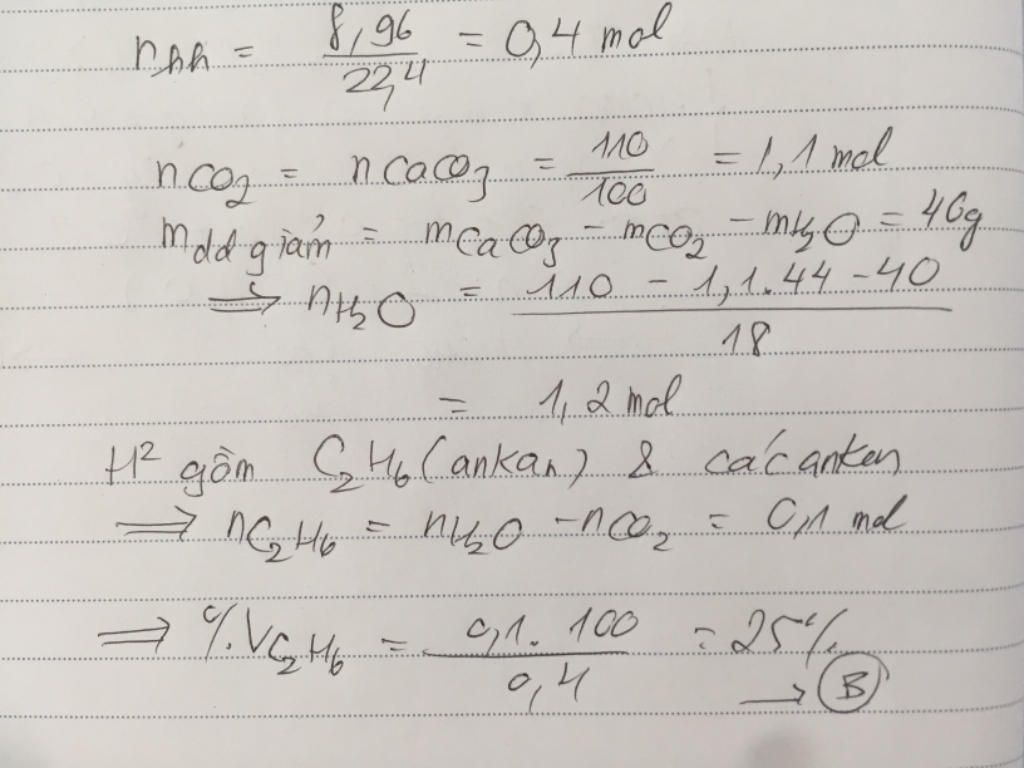 nhh = 8,96 / 22,4 = 0,4 mol
nCO₂ = nCaCO₃ = 110 / 100 = 1,1 mol
mdd giảm = mCaCO₃ - mCO₂ - mH₂O = 40g
⟹ nH₂O = 110 - 1,1.44 - 40 / 18
= 1,2 mol
H² gồm C₂H₆ (ankan) & các anken
⟹ nC₂H₆ = nH₂O - nCO₂ = 0,1 mol
⟹ %VC₂H₆ = 0,1. 100 / 0,4 = 25%
→ B